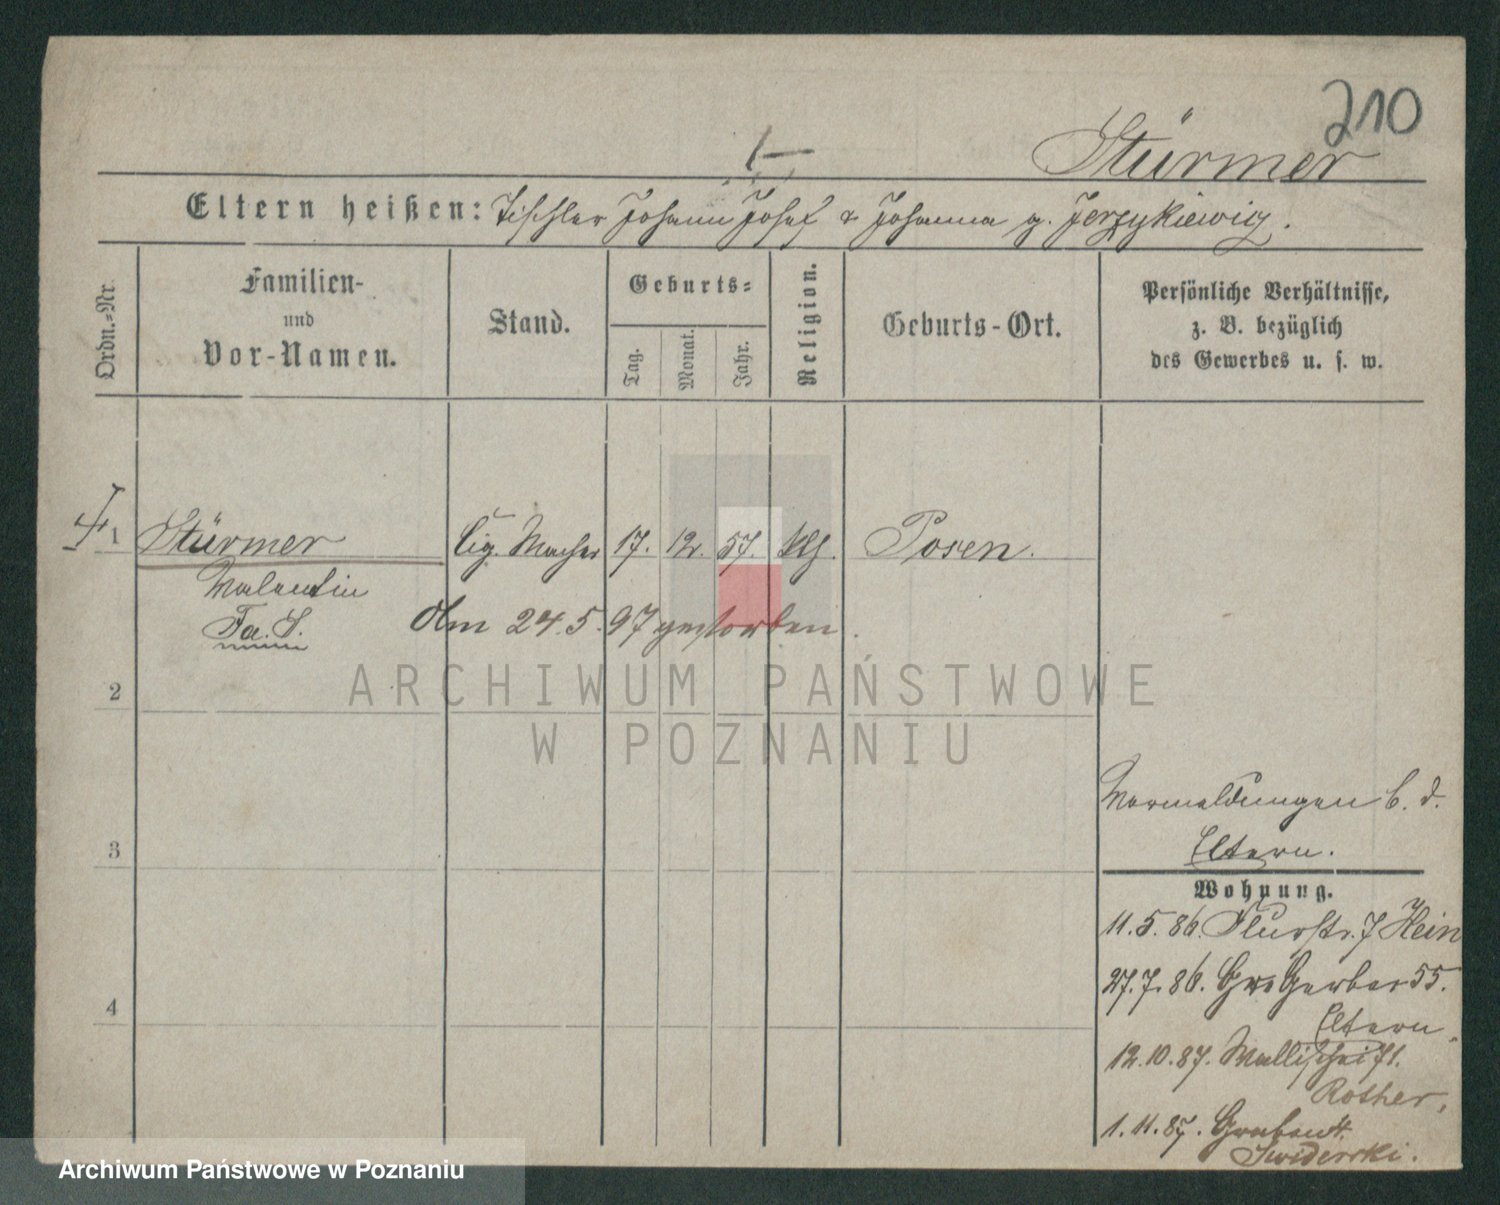 210
Stürmer
Eltern heißen: Tischler Johann Josef & Johanna g. Jerzykiewicz.
Ordn.-Nr.
Familien-
und
Vor-Namen.
Stand.
Geburts-
Tag.
Monat.
Jahr.
Religion.
Geburts-Ort.
Persönliche Verhältnisse,
z. B. bezüglich
des Gewerbes u. s. w.
1 Stürmer Cig. Macher 17. 12. 57. kth. Posen.
Valentin
Fa. S. Am 24.5.97 gestorben.
2
3
4
Vormeldungen b. d.
Eltern.
Wohnung.
11.5.86. Flurstr. 7 Hein
27.7.86. Gr. Gerber 55.
Eltern.
12.10.87. Wallischei 71.
Rother,
1.11.87. Graben
Swiderski.
ARCHIWUM PAŃSTWOWE
W POZNANIU
Archiwum Państwowe w Poznaniu